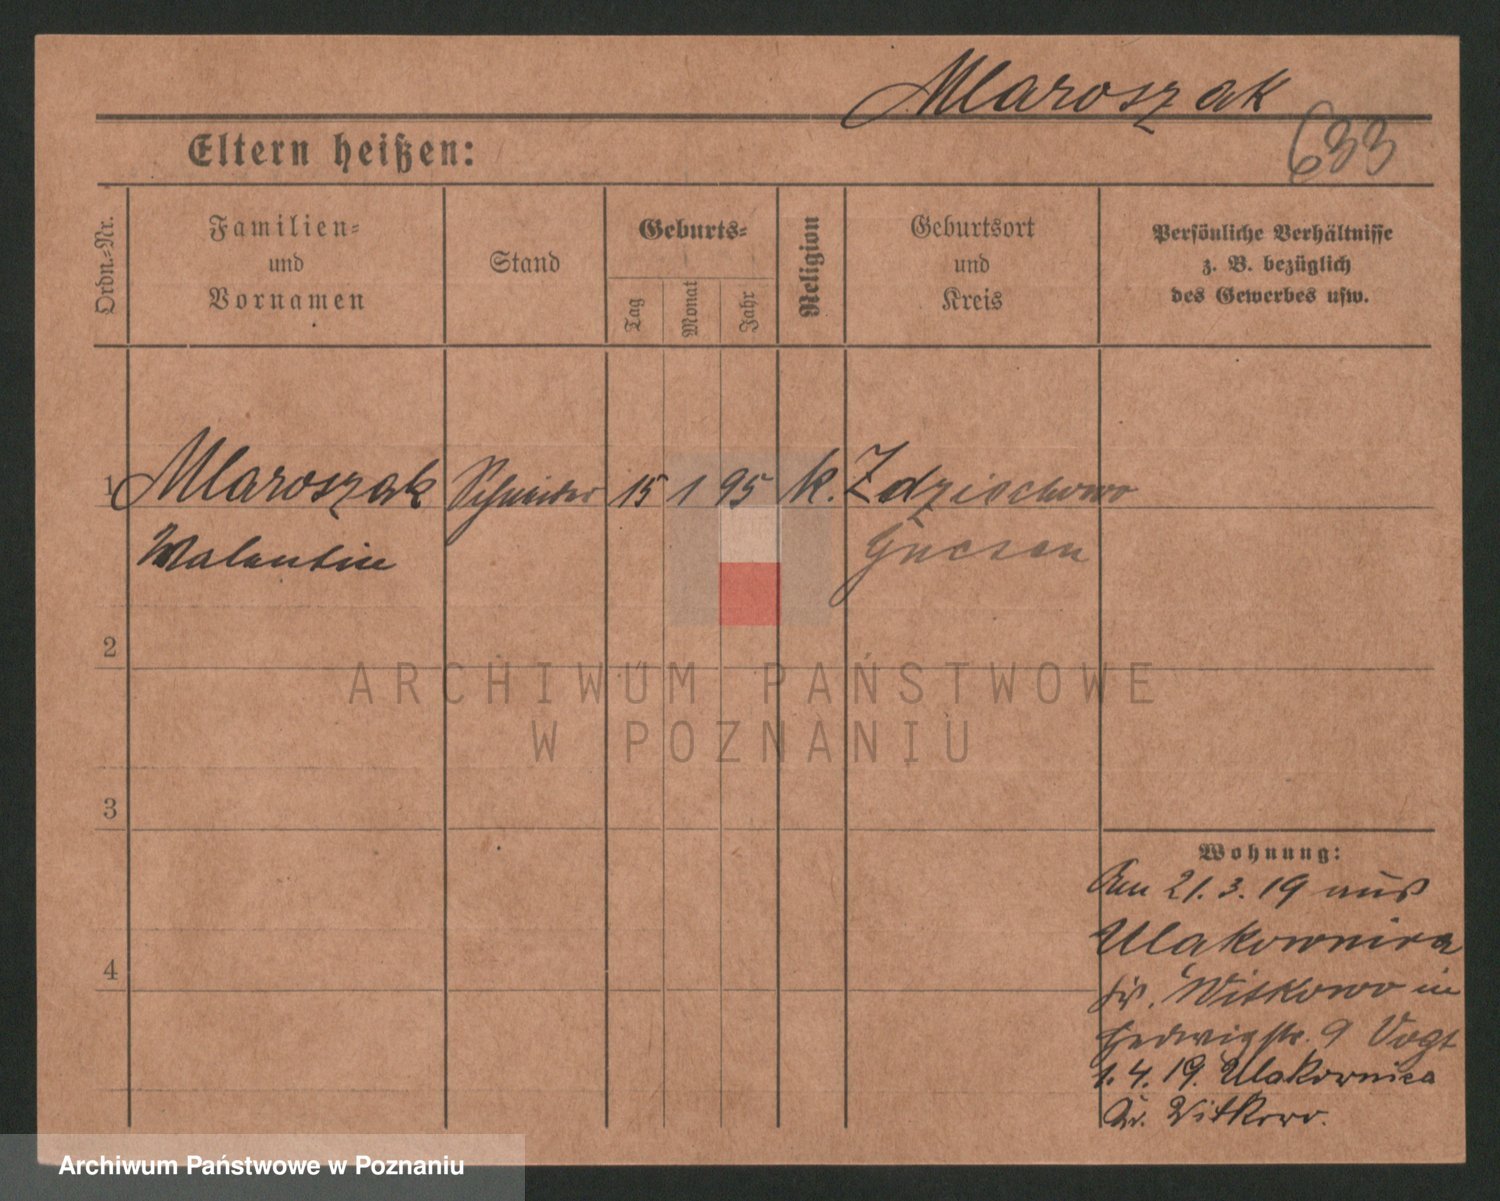 Mlaroszak
633
Eltern heißen:
Ordn.-Nr.
Familien-
und
Vornamen
Stand
Geburts-
Tag
Monat
Jahr
Religion
Geburtsort
und
Kreis
Persönliche Verhältnisse
z. B. bezüglich
des Gewerbes usw.
1 Mlaroszak Schneider 15 1 95 k. Zdziechowo
Walentin Gnesen
2
ARCHIWUM PAŃSTWOWE
W POZNANIU
3
Wohnung:
Am 21. 3. 19 aus
Mlakownica
Kr. Witkowo in
4
Hedwigstr. 9 Vogt
1. 4. 19. Mlakownica
Kr. Witkowo.
Archiwum Państwowe w Poznaniu